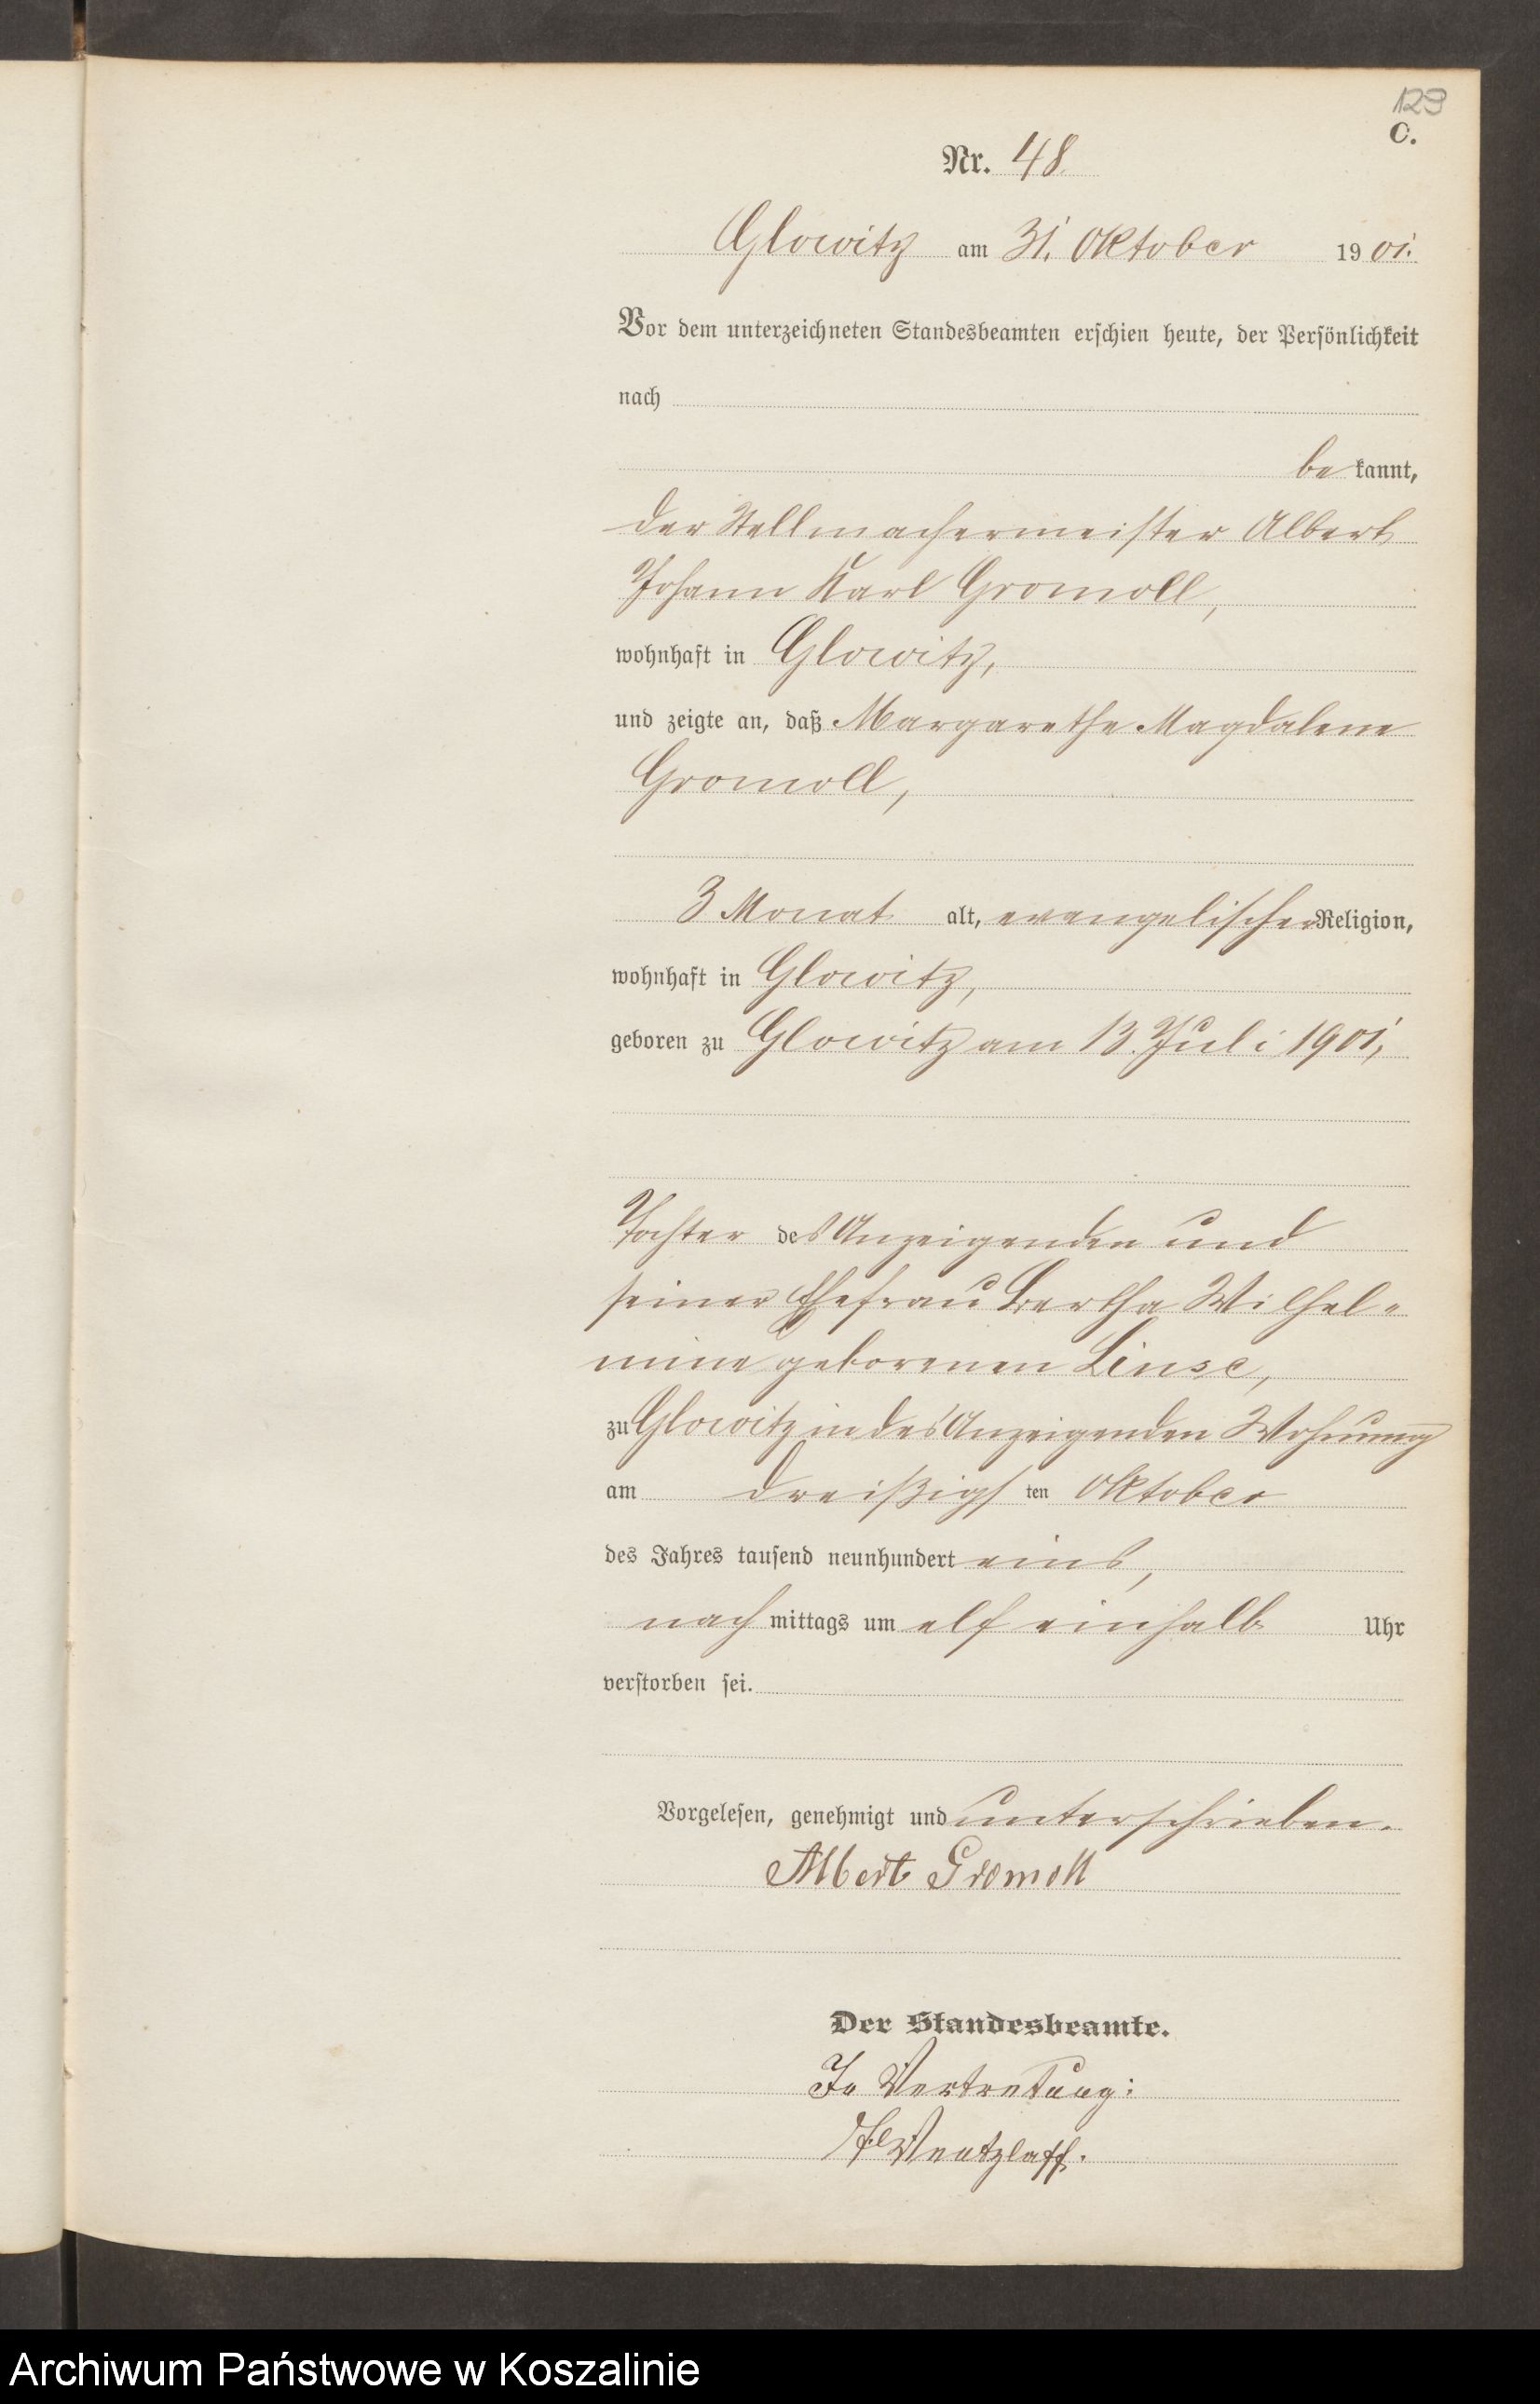 129
C.
Nr. 48.
Glowitz am 31. Oktober 1901.
Vor dem unterzeichneten Standesbeamten erschien heute, der Persönlichkeit
nach
bekannt,
der Stellmachermeister Albert
Johann Karl Gromoll,
wohnhaft in Glowitz,
und zeigte an, daß Margarethe Magdalene
Gromoll,
3 Monat alt, evangelischer Religion,
wohnhaft in Glowitz,
geboren zu Glowitz am 13. Juli 1901,
Tochter des Anzeigenden und
seiner Ehefrau Bertha Wilhel-
mine geborenen Linse,
zu Glowitz in des Anzeigenden Wohnung
am dreißigsten Oktober
des Jahres tausend neunhundert eins,
nachmittags um elf einhalb Uhr
verstorben sei.
Vorgelesen, genehmigt und unterschrieben.
Albert Gromoll
Der Standesbeamte.
In Vertretung:
Wentzlaff.
Archiwum Państwowe w Koszalinie